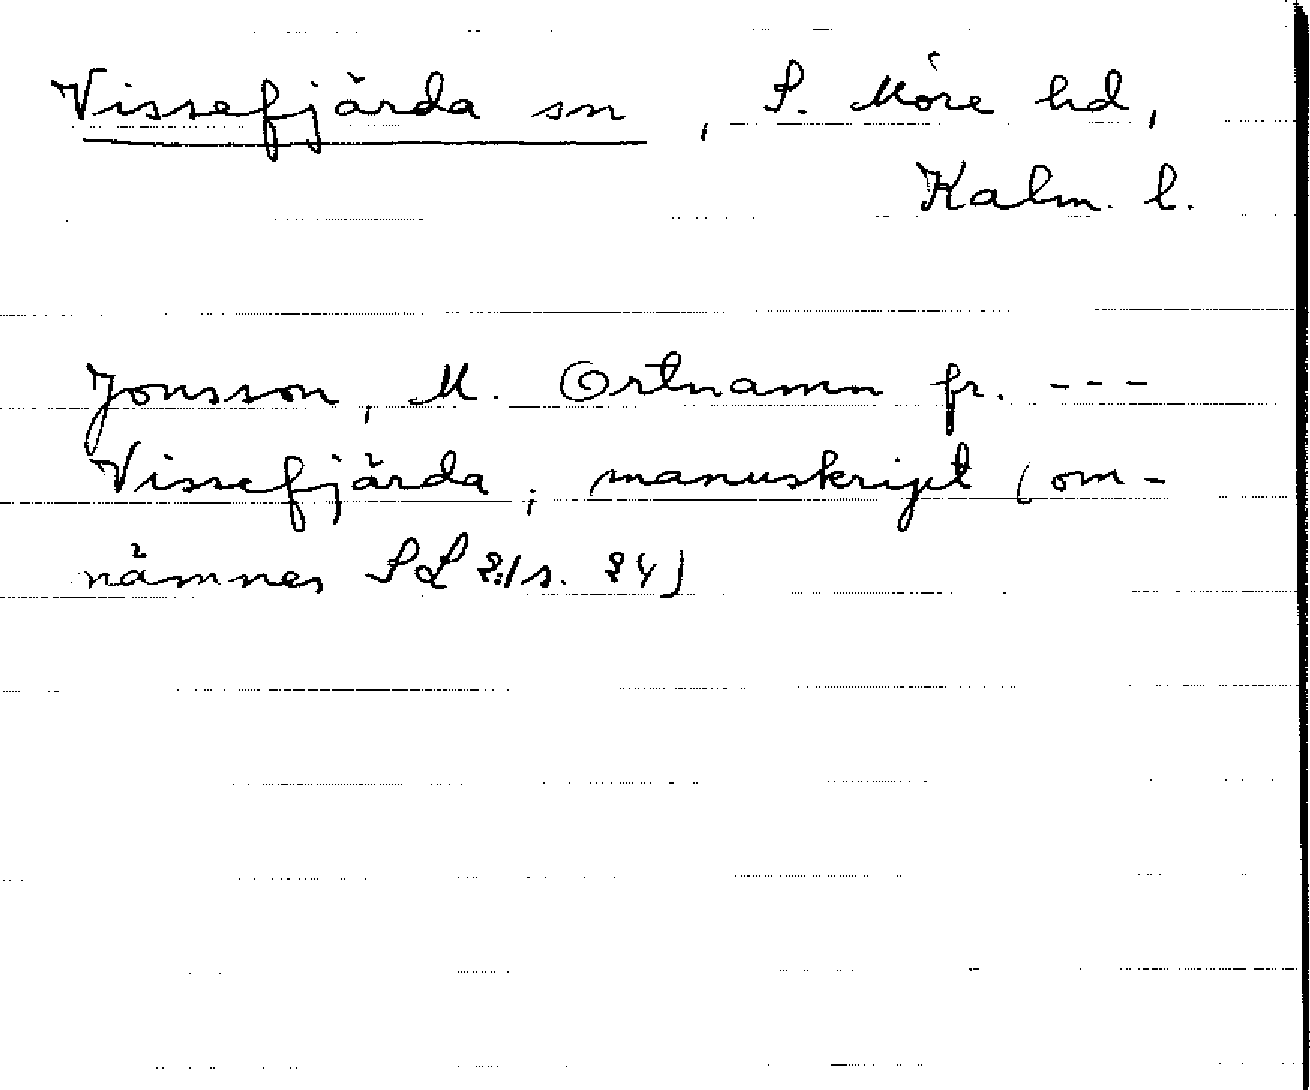 Vissefjärda sn, S. Möre hd,
Kalm. l.
Jonsson, M. Ortnamn fr. ---
Vissefjärda, manuskript (om-
nämnes SL 2:1 s. 24)